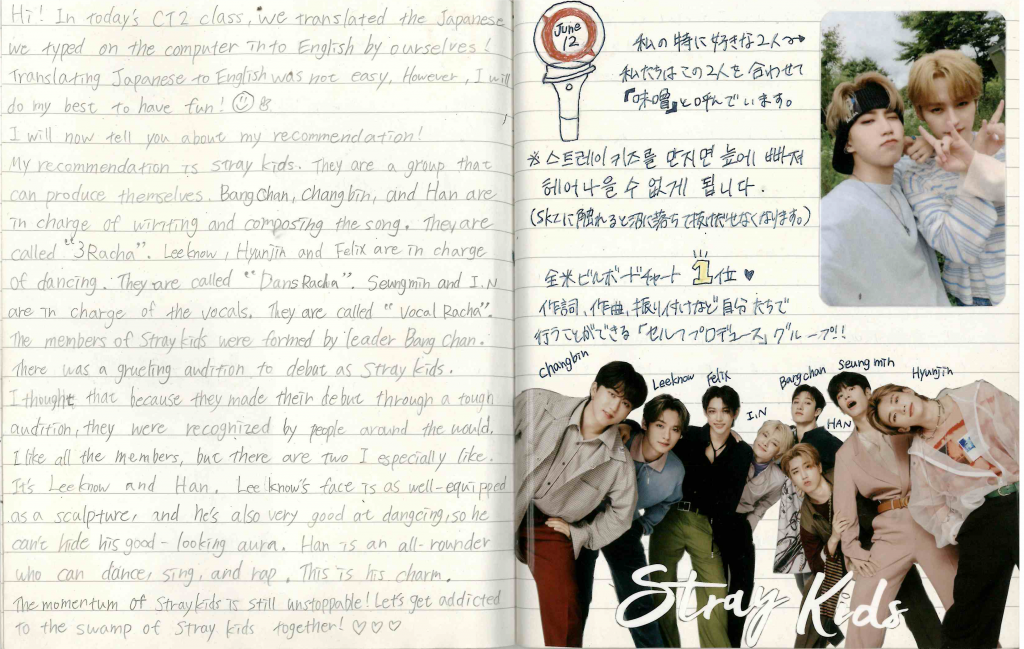 Hi! In today's CT2 class, we translated the Japanese
we typed on the computer into English by ourselves!
Translating Japanese to English was not easy. However, I will
do my best to have fun!
I will now tell you about my recommendation!
My recommendation is stray kids. They are a group that
can produce themselves. Bang Chan, Changbin, and Han are
in charge of wirnting and composting the song. They are
called "3Racha". Leeknow, Hyunjin and Felix are in charge
of dancing. They are called "DansRacha". Seungmin and I.N
are in charge of the vocals. They are called "Vocal Racha".
The members of Stray kids were formed by leader Bang Chan.
There was a grueling audition to debut as Stray kids.
I thought that because they made their debut through a tough
audition, they were recognized by people around the would.
I like all the members, but there are two I especially like.
It's Lee know and Han. Lee know's face is as well-equipped
as a sculpture, and he's also very good at dangcing, so he
can't hide his good-looking aura. Han is an all-rounder
who can dance, sing, and rap. This is his charm.
The momentum of Straykids is still unstoppable! Let's get addicted
to the swamp of Stray kids together! ♡♡♡
June
12
私の特に好きな2人
私たちはこの2人を合わせて
『味噌』と呼んでいます。
※ 스트레이 키즈를 만지면 늪에 빠져
헤어나올 수 없게 됩니다.
(SKZに触れると沼に落ちて抜け出せなくなります)
全米ビルボードチャート 1位 ♥
作詞、作曲、振り付けなど自分たちで
行うことができる「セルフプロデュース」グループ!!
changbin
Leeknow
Felix
I.N
Bangchan
Seungmin
HAN
Hyunjin
Stray Kids